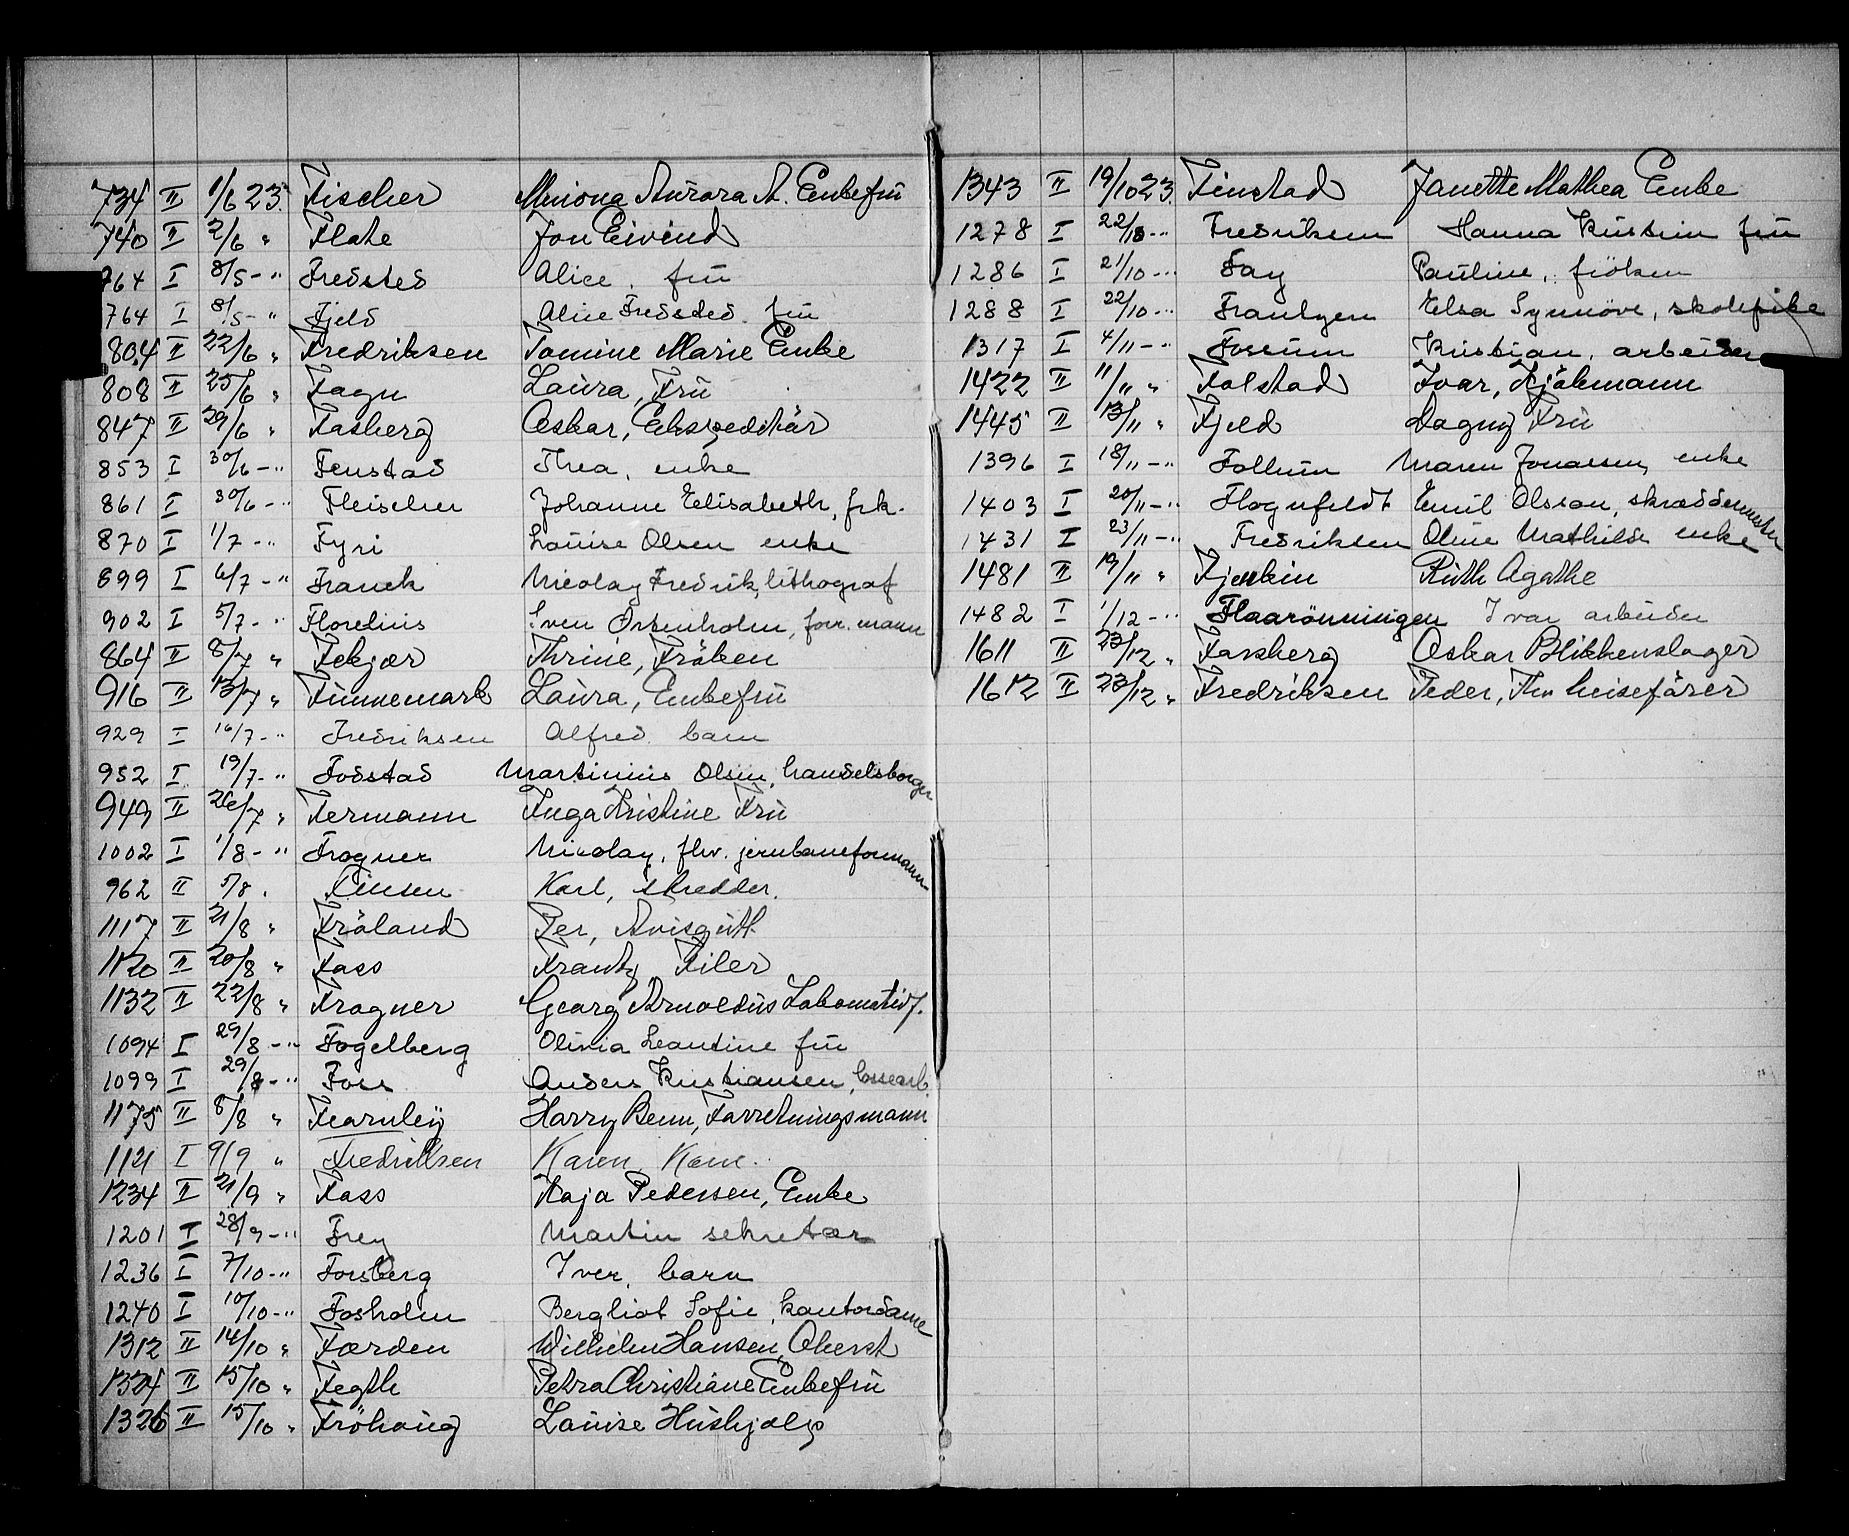 734 II 1/6 23. Fischer Miniona Aurora A. Enkefru
740 II 2/6 " Flate Jon Eivind
764 I 8/5 - " Fredsted Alice, fru
764 I 8/5 - " Fjeld Alice Fredsted fru
804 II 22/6 " Fredriksen Tomine Marie Enke
808 II 25/6 " Fagn Laura, Fru
847 II 29/6 " Fasberg Oskar, Ekspeditör
853 I 30/6 - " Fenstad Thea, enke
861 I 30/6 - " Fleischer Johanne Elisabeth, frk.
870 I 1/7 - " Fyri Louise Olsen enke
899 I 6/7 - " Franck Nicolay Fredrik, lithograf
902 I 5/7 - " Florelius Sven Östenholm, forr. mann
864 II 8/7 " Fekjær Thrine, Fröken
916 II 13/7 " Finnemark Laura, Enkefru
929 I 16/7 - " Fredriksen Alfred barn
952 I 19/7 - " Fodstad Martinius Olsen, handelsborger
949 II 26/7 " Fermann Inga Kristine Fru
1002 I 1/8 - " Frogner Nicolay, fhv. jernbaneformann
962 II 5/8 . Finsen Karl, skredder.
1117 II 21/8 " Fröland Per, Avisgutt
1120 II 20/8 " Foss Frantz Filer
1132 II 22/8 " Frogner Georg Arnoldus Lokomotivf.
1094 I 29/8 - " Fogelberg Olivia Leantine fru
1099 I 29/8 - " Foss Anders Kristiansen, lossearb
1175 II 8/8 " Fearnley Harry Benn, Forretningsmann
1121 I 9/9 " Fredriksen Karen
1234 II 21/9 " Foss Kaja Pedersen, Enke
1201 I 28/9 - " Frey Martin sekretær
1236 I 7/10 - " Forsberg Iver, barn
1240 I 10/10 - " Fosholm Bergliot Sofie, kontordame
1312 II 14/10 " Færden Wilhelm Hansen, Oberst
1324 II 15/10 " Fegth Petra Christiane Enkefru
1326 II 15/10 " Fröhaug Louise Hushjælp
1343 II 19/10 23. Finstad Janette Mathea Enke
1278 I 22/10 - " Fredriksen Hanna Kristin fru
1286 I 21/10 - " Fay Pauline, fröken
1288 I 22/10 - " Frantzen Elsa Synnöve, skolepike
1317 I 4/11 - " Fossum Kristian, arbeider
1422 II 11/11 " Folstad Ivar, Kjöbmann
1445 II 13/11 " Fjeld Dagny Fru
1396 I 18/11 - " Follum Maren Jonassen, enke
1403 I 20/11 - " Flognfeldt Emil Olsson, skræddermester
1431 I 23/11 - " Fredriksen Oline Mathilde enke
1481 II 19/11 " Fjerkin Ruth Agathe
1482 I 1/12 - " Flaarönningen Ivar arbeider
1611 II 23/12 " Fassberg Oskar Blikkenslager
1612 II 23/12 " Fredriksen Peder, Fhv heisefører